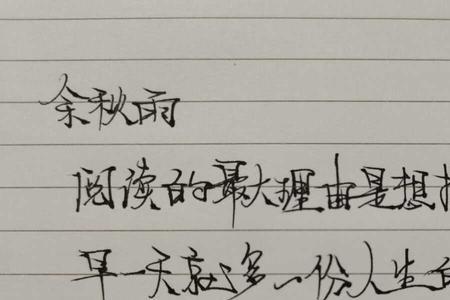 余秋雨
阅读的最大理由是想
早一天就多一份人生